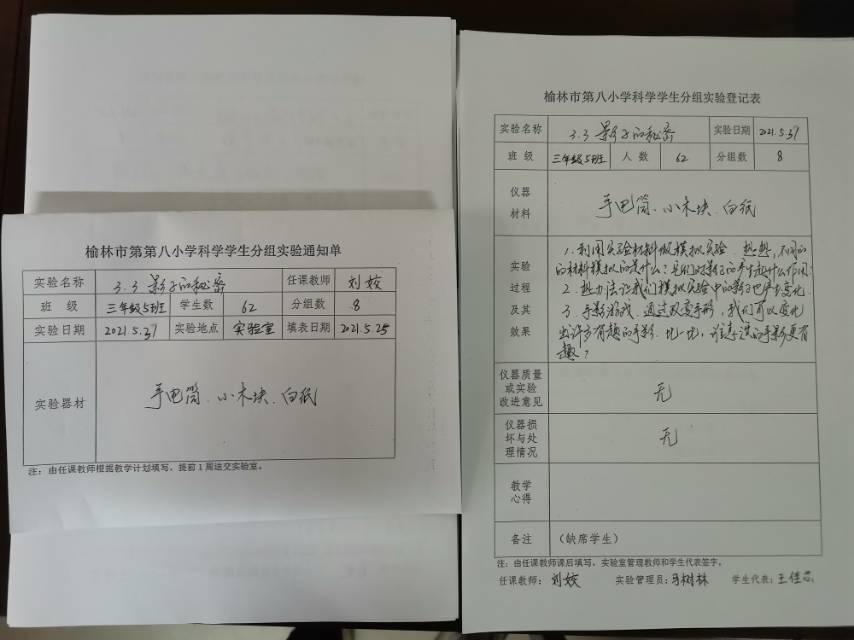 榆林市第第八小学科学学生分组实验通知单
实验名称 3.3 影子的秘密 任课教师 刘姣
班 级 三年级5班 学生数 62 分组数 8
实验日期 2021.5.27 实验地点 实验室 填表日期 2021.5.25
实验器材 手电筒、小木块、白纸
注：由任课教师根据教学计划填写、提前1周送交实验室。
榆林市第八小学科学学生分组实验登记表
实验名称 3.3 影子的秘密 实验日期 2021.5.27
班 级 三年级5班 人 数 62 分组数 8
仪器
材料
手电筒、小木块、白纸
实验
过程
及其
效果
1.利用实验材料做模拟实验，想想，不同的
的材料模拟的是什么？它们对影子的产生起什么作用
2.想办法让我们模拟实验中的影子也产生变化
3.手影游戏，通过改变手形，我们可以变化
出许多有趣的手影，比一比，谁表演的手影更有
趣？
仪器质量
或实验
改进意见
无
仪器损
坏与处
理情况
无
教学
心得
备注 （缺席学生）
注：由任课教师课后填写、实验室管理教师和学生代表签字。
任课教师：刘姣 实验管理员：马树林 学生代表：王佳芯